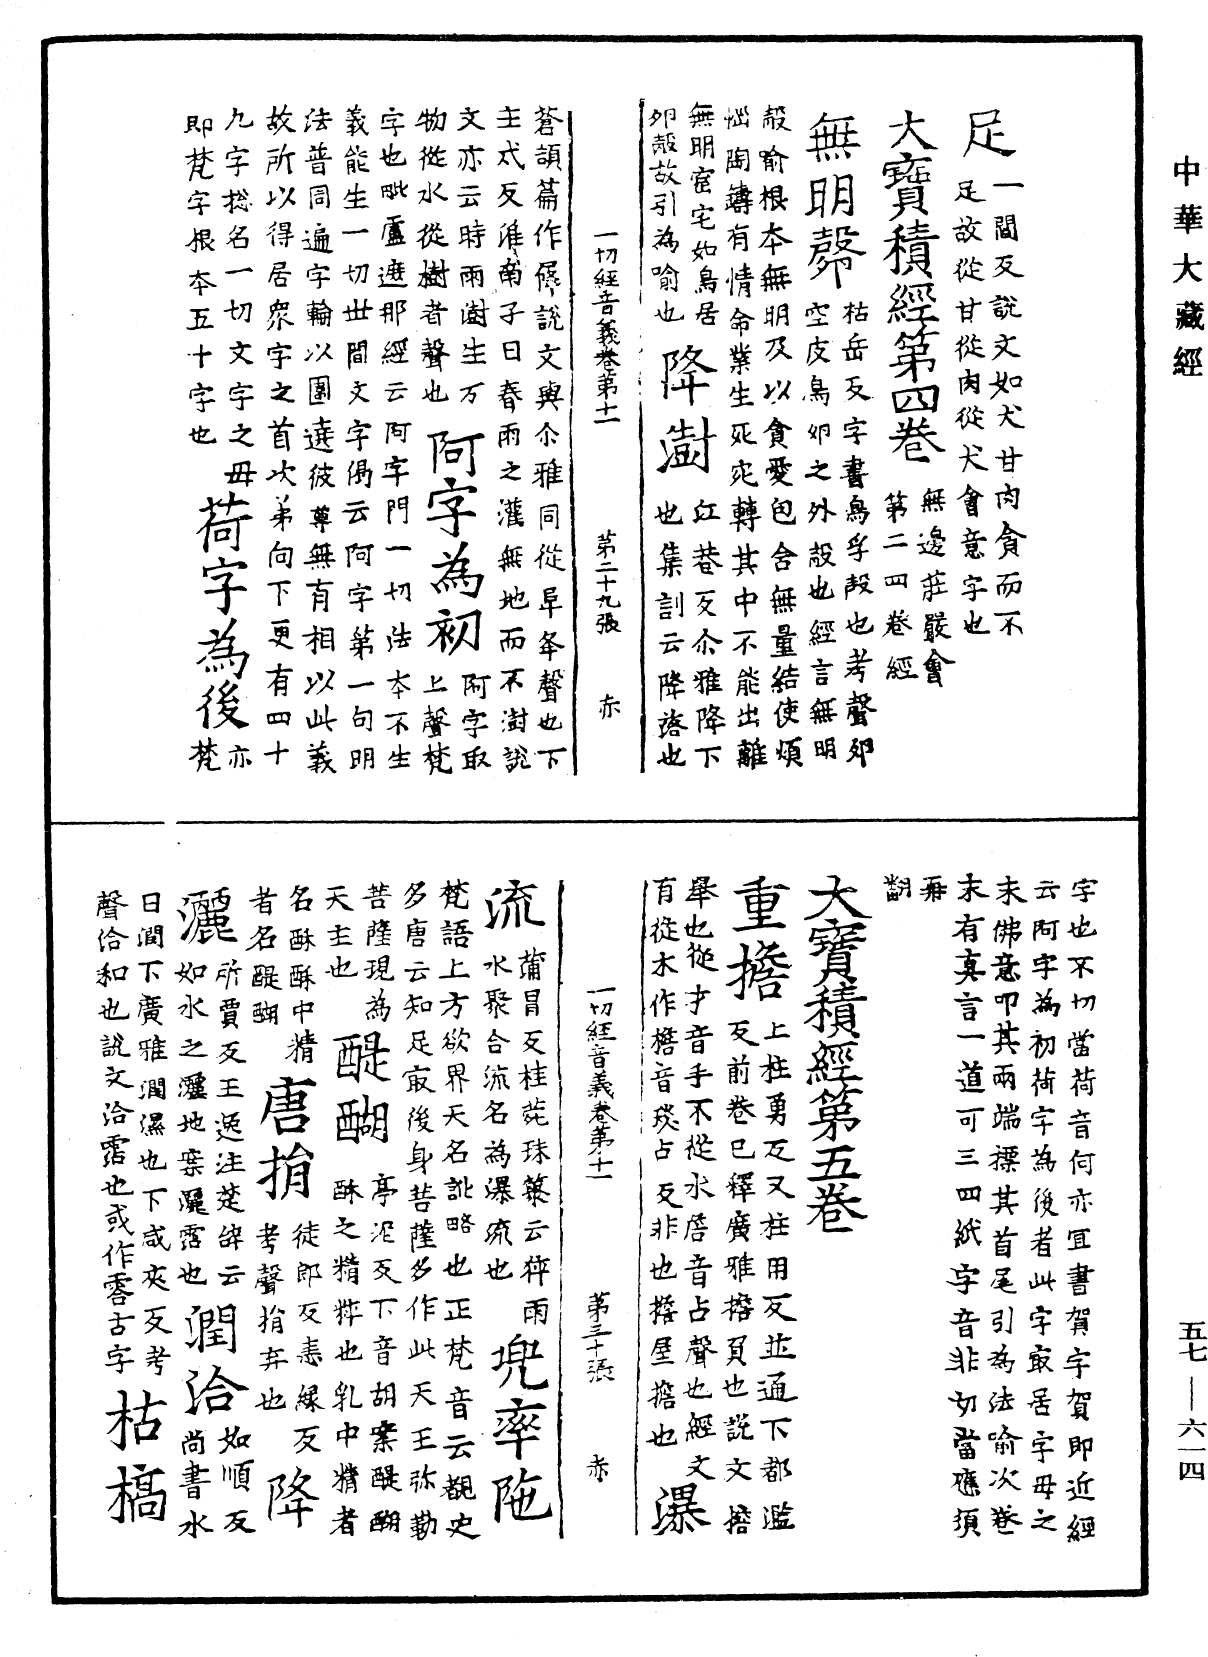 中華大藏經
足一間反說文如犬甘肉貪而不
足故從甘從肉從犬會意字也
大寶積經第四卷無邊莊嚴會
第二四卷經
無明㲉枯岳反字書鳥孚㱿也考聲卵
空皮鳥卵之外殼也經言無明
殼喻根本無明及以貪愛包含無量結使煩
惱陶鑄有情命業生死宛轉其中不能出離
無明窟宅如鳥居
卵㲉故引為喻也
降澍江巷反尒雅降下
也集訓云降落也
一切經音義卷第十一　第二十九張　赤
蒼頡篇作𨺗說文與尒雅同從阜夅聲也下
主戍反淮南子曰春雨之灌無地而不澍說
文亦云時雨澍生万
物從水從尌者聲也
阿字為初阿字取
上聲梵
字也毗盧遮那經云阿字門一切法本不生
義能生一切世間文字偈云阿字第一句明
法普同遍字輪以圍遶彼尊無有相以此義
故所以得居衆字之首次弟向下更有四十
九字捴名一切文字之母
即梵字根本五十字也
荷字為後亦
梵
字也不切當荷音何亦冝書賀字賀即近經
云阿字為初荷字為後者此字㝡居字母之
末佛意叩其兩端摽其首尾引為法喻次卷
末有真言一道可三四紙字音非切當應須
再
翻
大寶積經第五卷
重擔上柱勇反又柱用反並通下都濫
反前卷已釋廣雅擔負也說文擔
舉也從才音手不從水詹音占聲也經文
有從木作檐音琰占反非也擔屋檐也
瀑
一切經音義卷第十一　第三十張　赤
流蒲冒反桂苑珠藂云猝雨
水聚合流名為瀑流也
兜率陁
梵語上方欲界天名訛略也正梵音云覩史
多唐云知足㝡後身菩薩多作此天王弥勒
菩薩現為
天主也
醍醐亭泥反下音胡案醍醐
酥之精粹也乳中精者
名酥酥中精
者名醍醐
唐捐徒郎反恚緣反
考聲捐弃也
降
灑所賈反王逸注楚辝云
如水之灑地案灑霑也
潤洽如順反
尚書水
曰潤下廣雅潤濕也下咸夾反考
聲洽和也說文洽霑也或作零古字
枯槁
五七—六一四